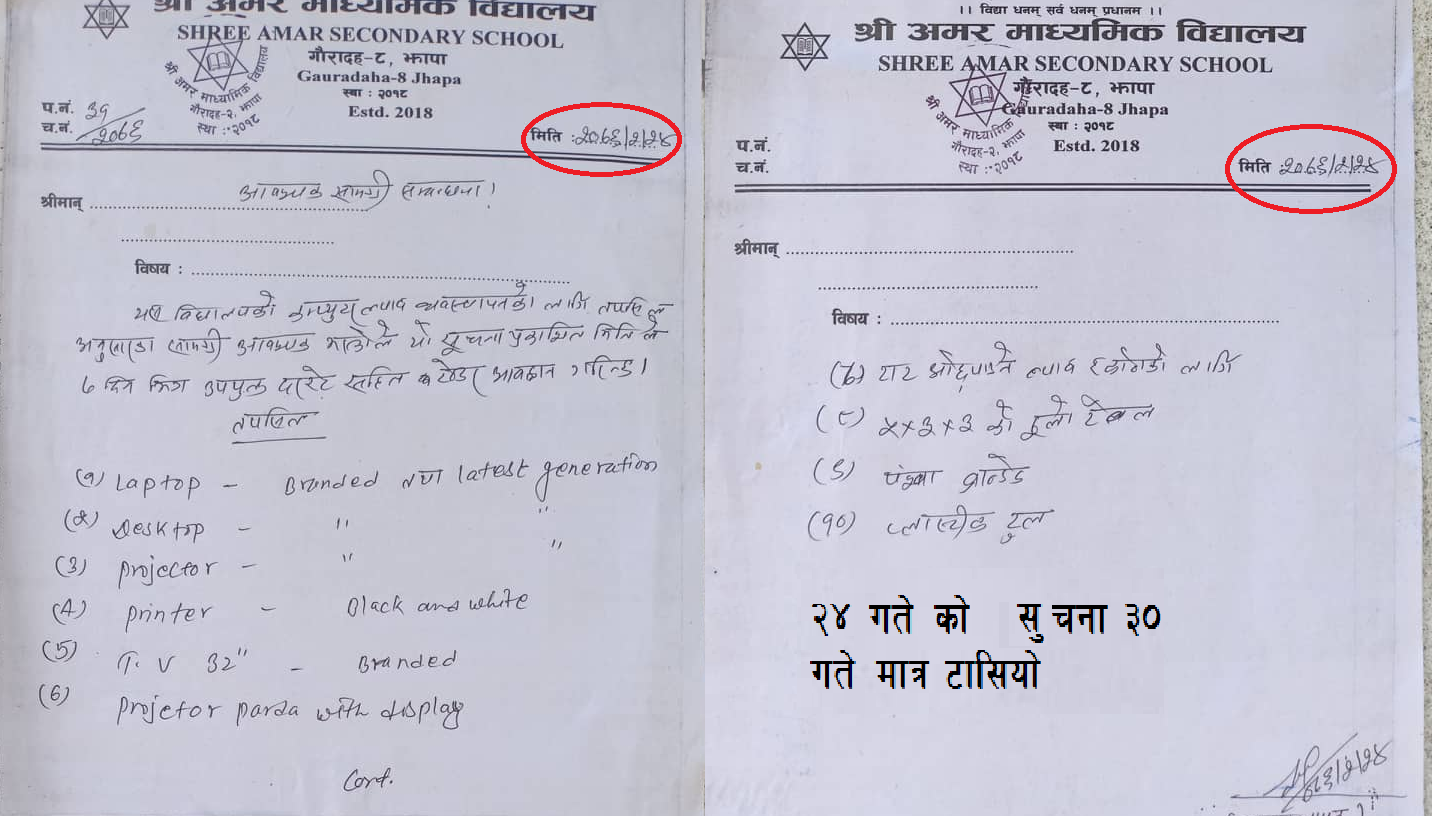 श्री अमर माध्यमिक विद्यालय
SHREE AMAR SECONDARY SCHOOL
गौरादह-८, झापा
Gauradaha-8 Jhapa
स्था : २०१८
Estd. 2018
श्री अमर माध्यमिक विद्यालय
गौरादह-२, झापा
स्था : २०१८
प.नं. ३९
च.नं. / २०८६
मिति : २०८६/२/२४
आवश्यक सामग्री सम्बन्धमा।
श्रीमान्
विषय :
यस विद्यालयको कम्प्युटर ल्याब व्यवस्थापनको लागि तपसिल
अनुसारका सामग्री आवश्यक भएकोले यो सूचना प्रकाशित मितिले
७ दिन भित्र उपयुक्त दररेट सहित टेण्डर आवहान गरिन्छ।
तपसिल
(१) Laptop - Branded तथा latest generation
(२) Desktop - " "
(3) projector - " "
(4) printer - Black and white
(5) T.V 32" - Branded
(6) projetor parda with display
Cont.
।। विद्या धनम् सर्व धनम् प्रधानम ।।
श्री अमर माध्यमिक विद्यालय
SHREE AMAR SECONDARY SCHOOL
गौरादह-८, झापा
Gauradaha-8 Jhapa
स्था : २०१८
Estd. 2018
श्री अमर माध्यमिक विद्यालय
गौरादह-२, झापा
स्था : २०१८
प.नं.
च.नं.
मिति : २०८६/२/२४
श्रीमान्
विषय :
(७) टाट ओछ्याउने ल्याब कोठाको लागि
(८) ५×३×३ को ठूलो टेबल
(९) पंखा ब्रान्डेड
(१०) प्लास्टीक टुल
२४ गते को सुचना ३०
गते मात्र टासियो